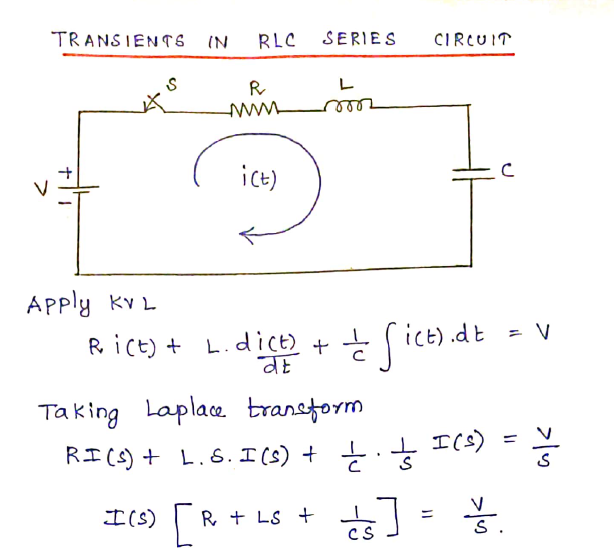 TRANSIENTS IN RLC SERIES CIRCUIT
S R L
V + - i(t) C
Apply KVL
R i(t) + L. di(t)/dt + 1/C ∫ i(t).dt = V
Taking Laplace transform
RI(s) + L.S.I(s) + 1/C . 1/S I(s) = V/S
I(s) [ R + LS + 1/CS ] = V/S.